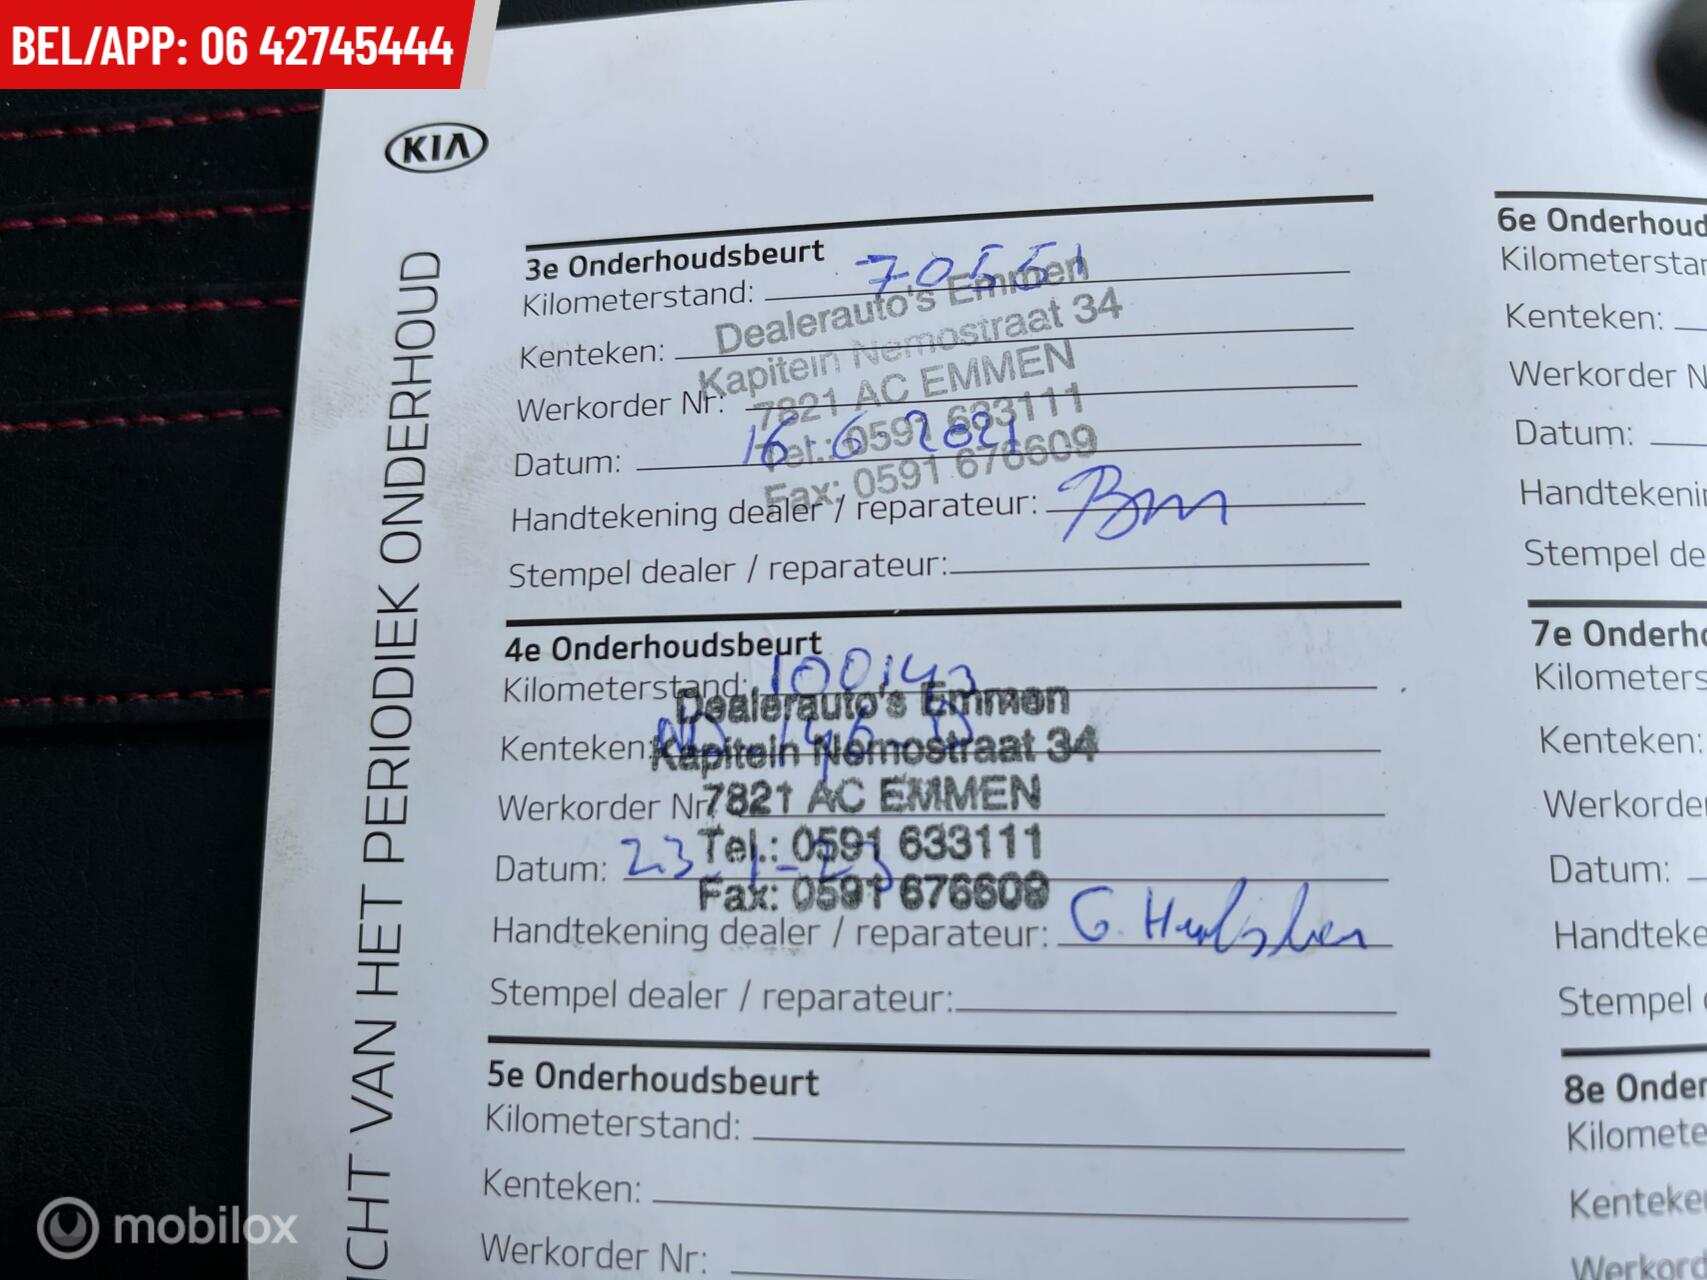 BEL/APP: 06 42745444
KIA
CHT VAN HET PERIODIEK ONDERHOUD
3e Onderhoudsbeurt
Kilometerstand: 70551
Dealerauto's Emmen
Kenteken:
Kapitein Nemostraat 34
Werkorder Nr:
7821 AC EMMEN
Datum: 16-6-2021
Tel.: 0591 633111
Fax: 0591 676609
Handtekening dealer / reparateur:
Stempel dealer / reparateur:
4e Onderhoudsbeurt
Kilometerstand: 100143
Dealerauto's Emmen
Kenteken:
Kapitein Nemostraat 34
Werkorder Nr
7821 AC EMMEN
Tel.: 0591 633111
Datum: 23-1-23
Fax: 0591 676609
Handtekening dealer / reparateur: G.
Stempel dealer / reparateur:
5e Onderhoudsbeurt
Kilometerstand:
Kenteken:
Werkorder Nr:
6e Onderhoud
Kilometerstan
Kenteken:
Werkorder N
Datum:
Handtekenin
Stempel de
7e Onderho
Kilometers
Kenteken:
Werkorde
Datum:
Handteke
Stempel
8e Onder
Kilomete
Kenteke
Werkord
mobilox